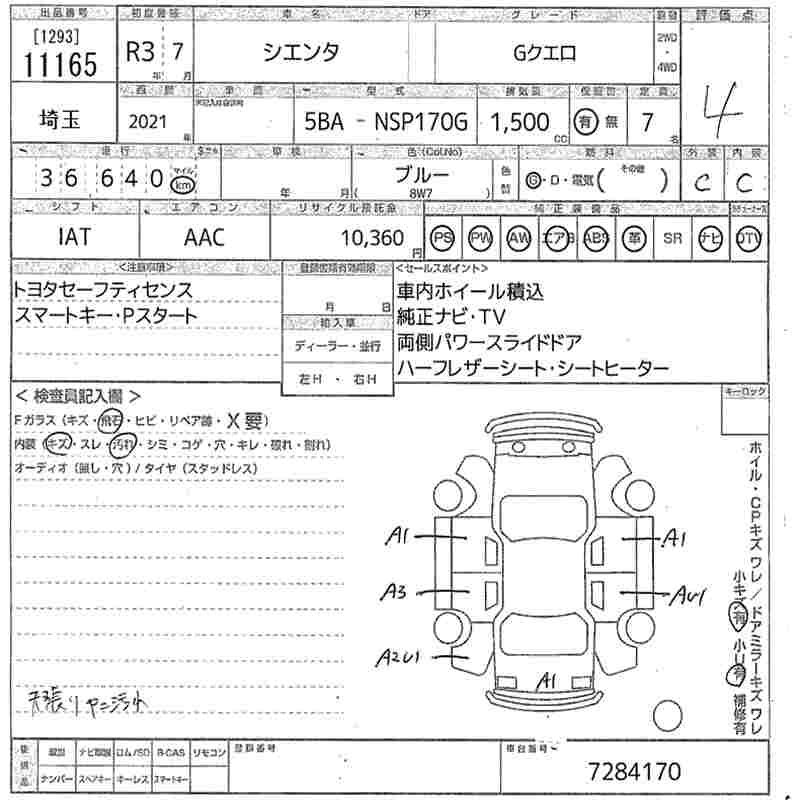 出品番号 初度登録 車名 ドア グレード 評価点
[1293]
11165 R3 7 シエンタ Gクエロ 2WD 4WD 4
年 月
車歴 型式 排気量 保証書 定員
埼玉 2021 年 5BA - NSP170G 1,500 cc 有 無 7 名
走行 車検 色(Col.No) 燃料 外装 内装
36 640 マイル km 年 月 ブルー ( 8W7 ) 色替 G・D・電気 ( その他 ) C C
シフト エアコン リサイクル預託金 純正装備品
IAT AAC 10,360 円 PS PW AW エアB ABS 革 SR ナビ DTV
<注意事項> 登録書類有効期限 <セールスポイント>
トヨタセーフティセンス 車内ホイール積込
スマートキー・Pスタート 月 日 純正ナビ・TV
輸入車 両側パワースライドドア
ディーラー・並行 ハーフレザーシート・シートヒーター
左H ・ 右H
< 検査員記入欄 > キーロック
Fガラス (キズ・飛石・ヒビ・リペア跡・X要)
内装 (キズ・スレ・汚れ・シミ・コゲ・穴・キレ・破れ・割れ)
オーディオ (無し・穴) / タイヤ (スタッドレス)
ホイル・CPキズ ワレ / ドアミラーキズ ワレ
小キズ有 小U有 補修有
A1 A1
A3 AU1
A2U1
A1
天張り ヤニ汚れ
後日品 取説 ナビ取説 ロム/SD B-CAS リモコン 登録番号 車台番号
ナンバー スペアキー キーレス スマートキー 7284170